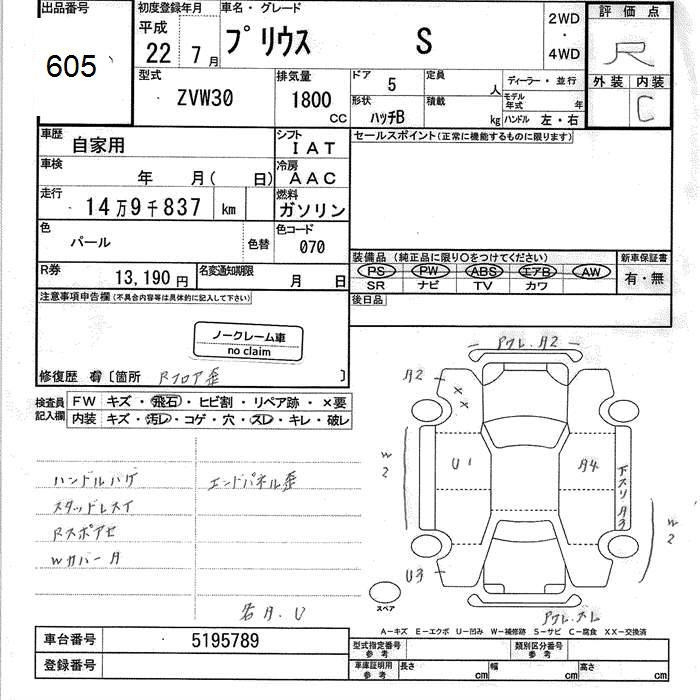 出品番号
605
初度登録年月
平成
22 7月
車名・グレード
プリウス S
2WD
・
4WD
評価点
R
外装 内装
C
型式
ZVW30
排気量
1800
CC
ドア 5
定員 人
ディーラー・並行
形状 ハッチB
積載 kg
モデル年式 年
ハンドル 左・右
車歴 自家用
シフト IAT
セールスポイント(正常に機能するものに限ります)
車検 年 月( 日)
冷房 AAC
走行 14万9千837 km
燃料 ガソリン
色 パール 色替
色コード 070
装備品 (純正品に限り○をつけてください)
新車保証書
PS PW ABS エアB AW
有・無
SR ナビ TV カワ
R券 13,190円
名変通知期限 月 日
後日品
注意事項申告欄(不具合内容等は具体的に記入して下さい)
ノークレーム車
no claim
修復歴 有 [箇所 Rフロア歪 ]
検査員記入欄
FW キズ・飛石・ヒビ割・リペア跡・×要
内装 キズ・汚レ・コゲ・穴・スレ・キレ・破レ
ハンドルハゲ エンドパネル歪
スタッドレスイ
Rスポアセ
Wカバー A
若A.U
Fワレ.A2
A2
X X
W2
U1
A4
下スリ A3
W2
U3
Fワレ.スレ
スペア
A−キズ E−エクボ U−凹み W−補修跡 S−サビ C−腐食 XX−交換済
車台番号 5195789
登録番号
型式指定番号 参考
類別区分番号 参考
車庫証明用 参考
長さ cm 幅 cm 高さ cm